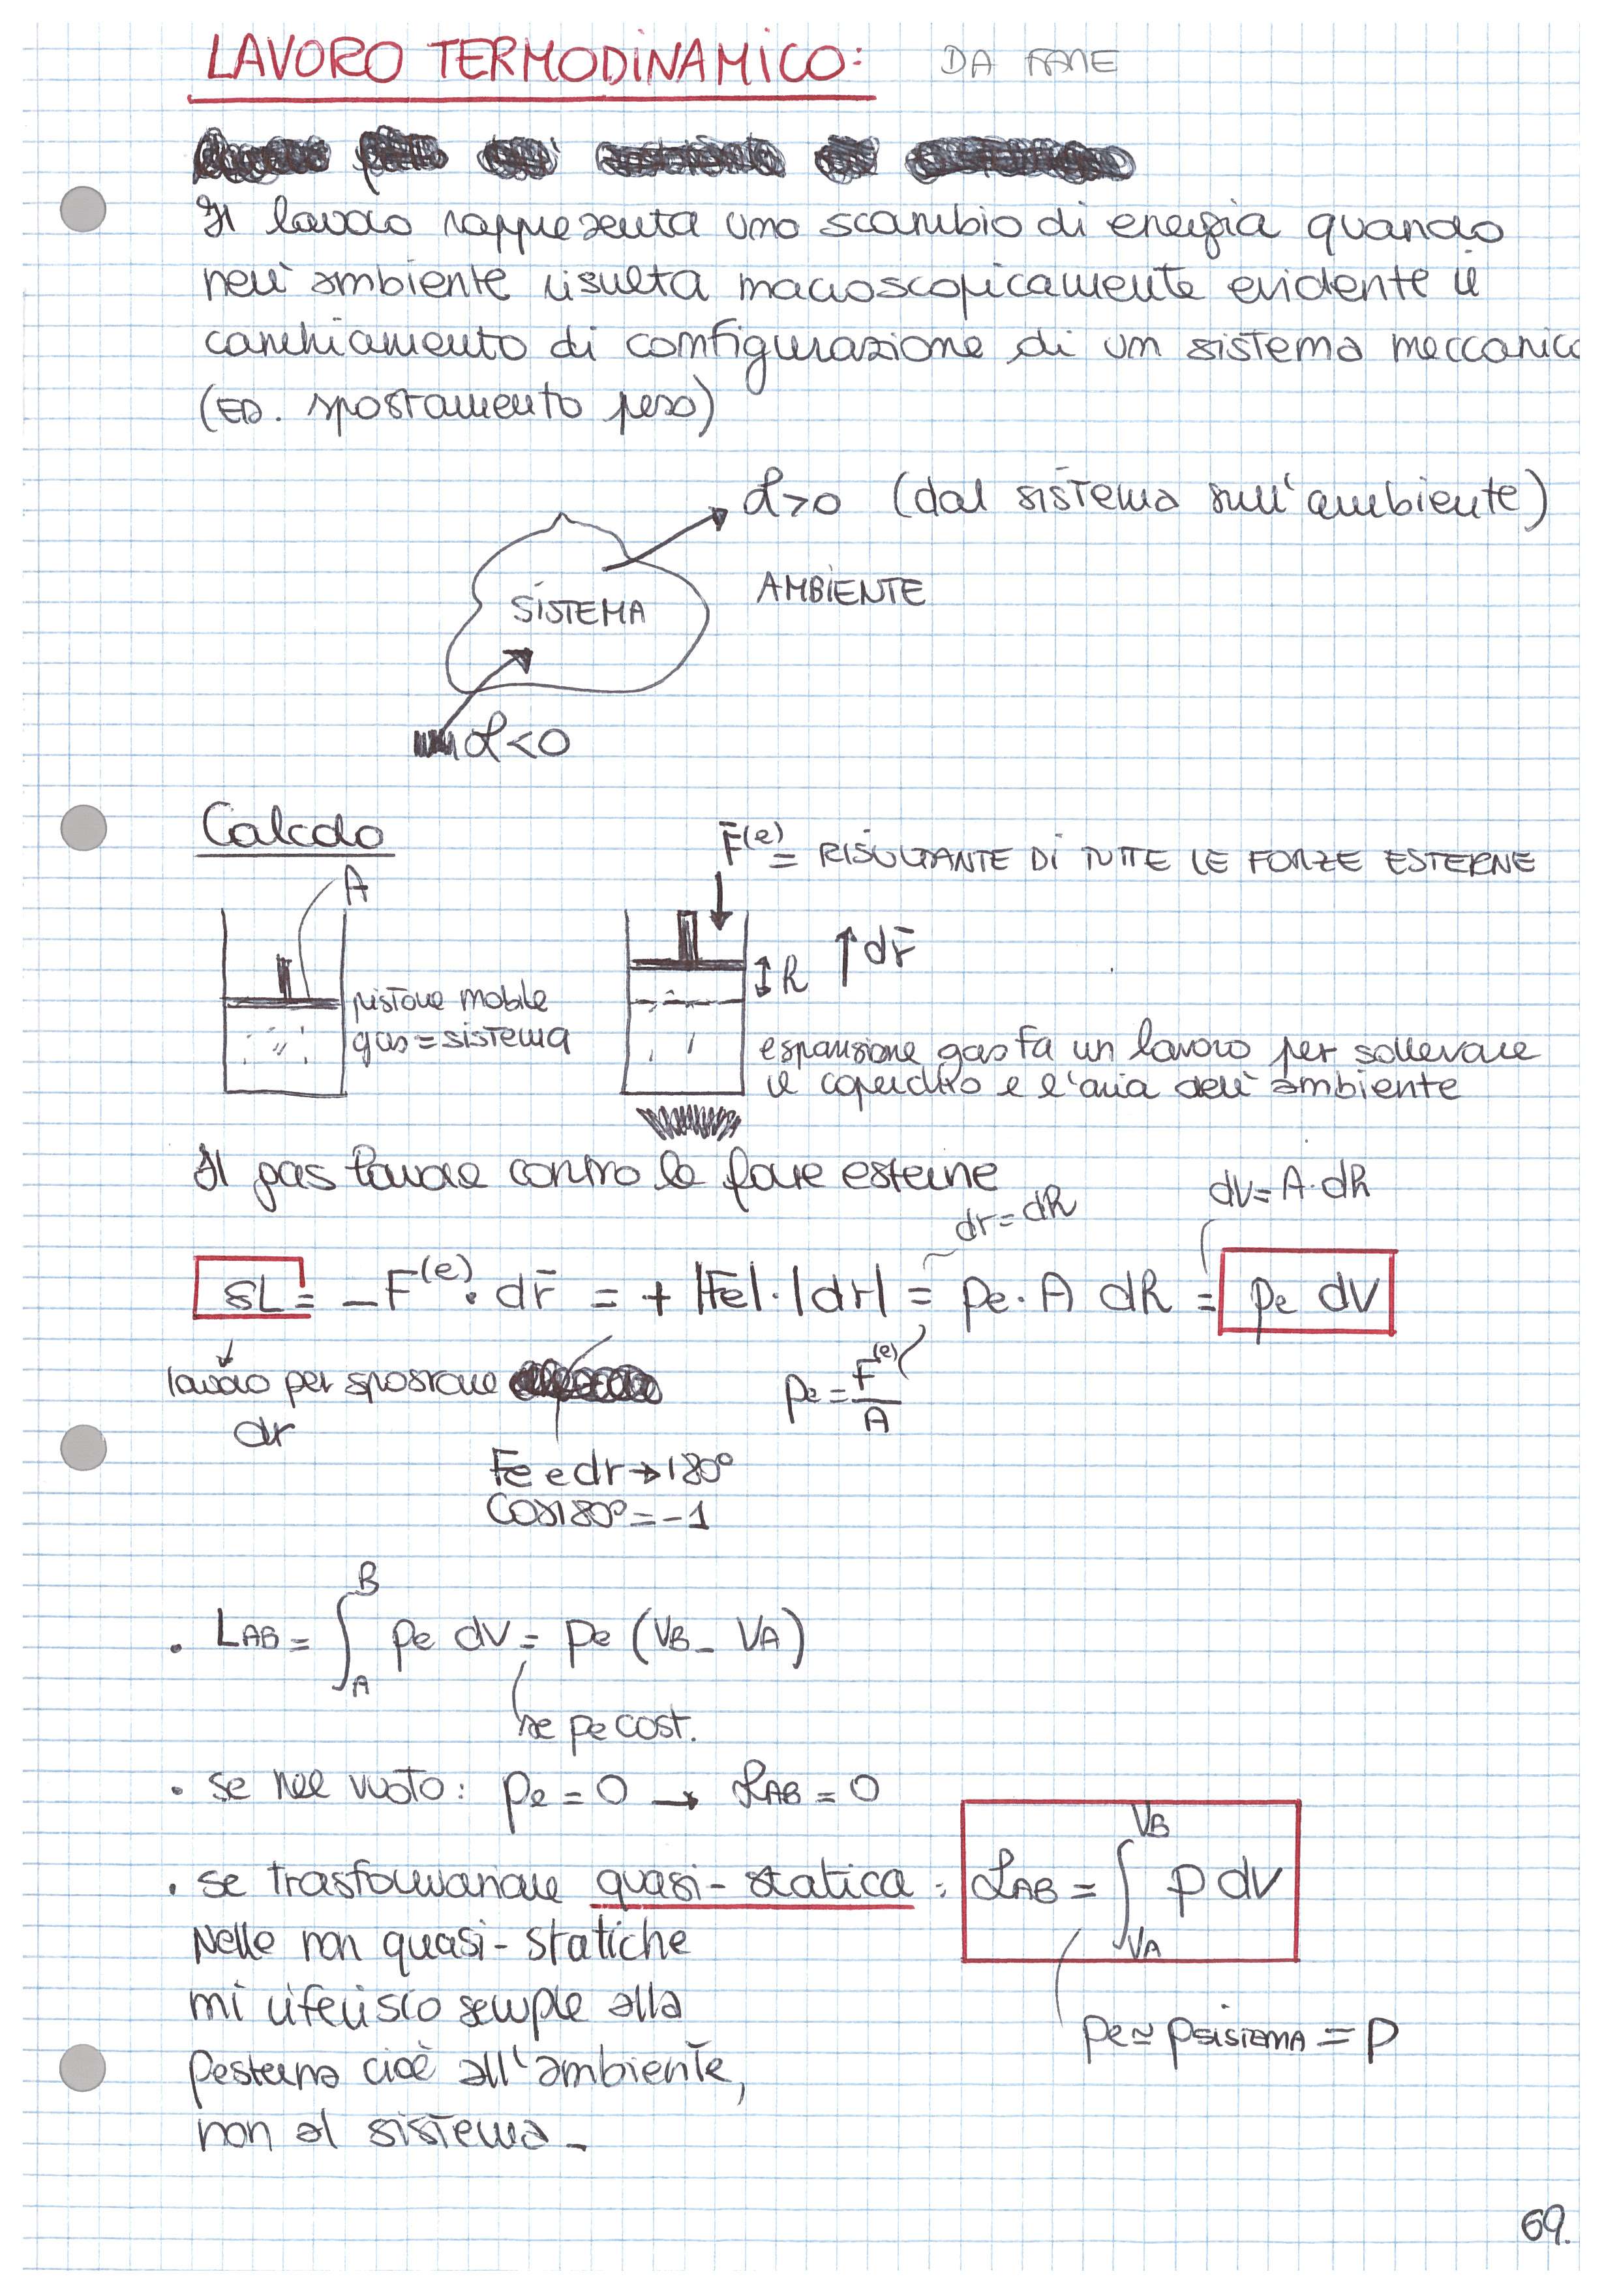 LAVORO TERMODINAMICO: DA FARE
Il lavoro rappresenta uno scambio di energia quando
nell'ambiente risulta macroscopicamente evidente il
cambiamento di configurazione di un sistema meccanico
(ES. spostamento peso)
ℒ>0 (dal sistema sull'ambiente)
AMBIENTE
SISTEMA
ℒ<0
Calcolo
F̄⁽ᵉ⁾ = RISULTANTE DI TUTTE LE FORZE ESTERNE
A
dr̄
h
pistone mobile
gas = sistema
espansione gas fa un lavoro per sollevare
il coperchio e l'aria dell'ambiente
Il gas lavora contro le forze esterne
dr = dh
dV = A·dh
δL = -F⁽ᵉ⁾ · dr̄ = + |Fe|·|dr| = pe·A dh = pe dV
lavoro per spostare
dr
pe = F⁽ᵉ⁾/A
Fe e dr → 180°
cos180° = -1
· LAB = ∫_A^B pe dV = pe (VB - VA)
se pe cost.
· se nel vuoto: pe = 0 → ℒAB = 0
· se trasformazione quasi-statica: ℒAB = ∫_VA^VB p dV
Nelle non quasi-statiche
mi riferisco sempre alla
Pesterna cioè all'ambiente,
non al sistema -
pe ≃ pSISTEMA = p
69.